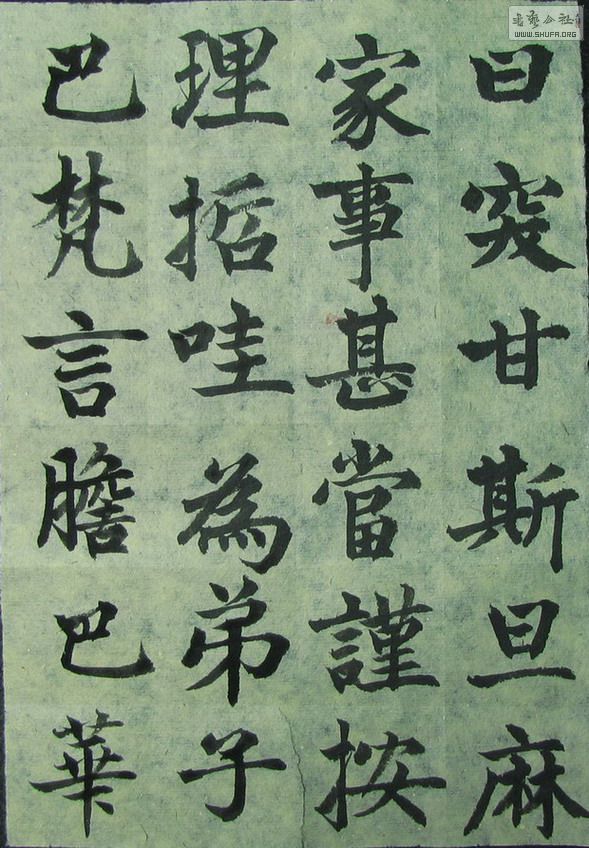 曰突甘斯旦麻
家事甚當謹按
理哲哇為弟子
巴梵言膽巴華
書藝公社
WWW.SHUFA.ORG